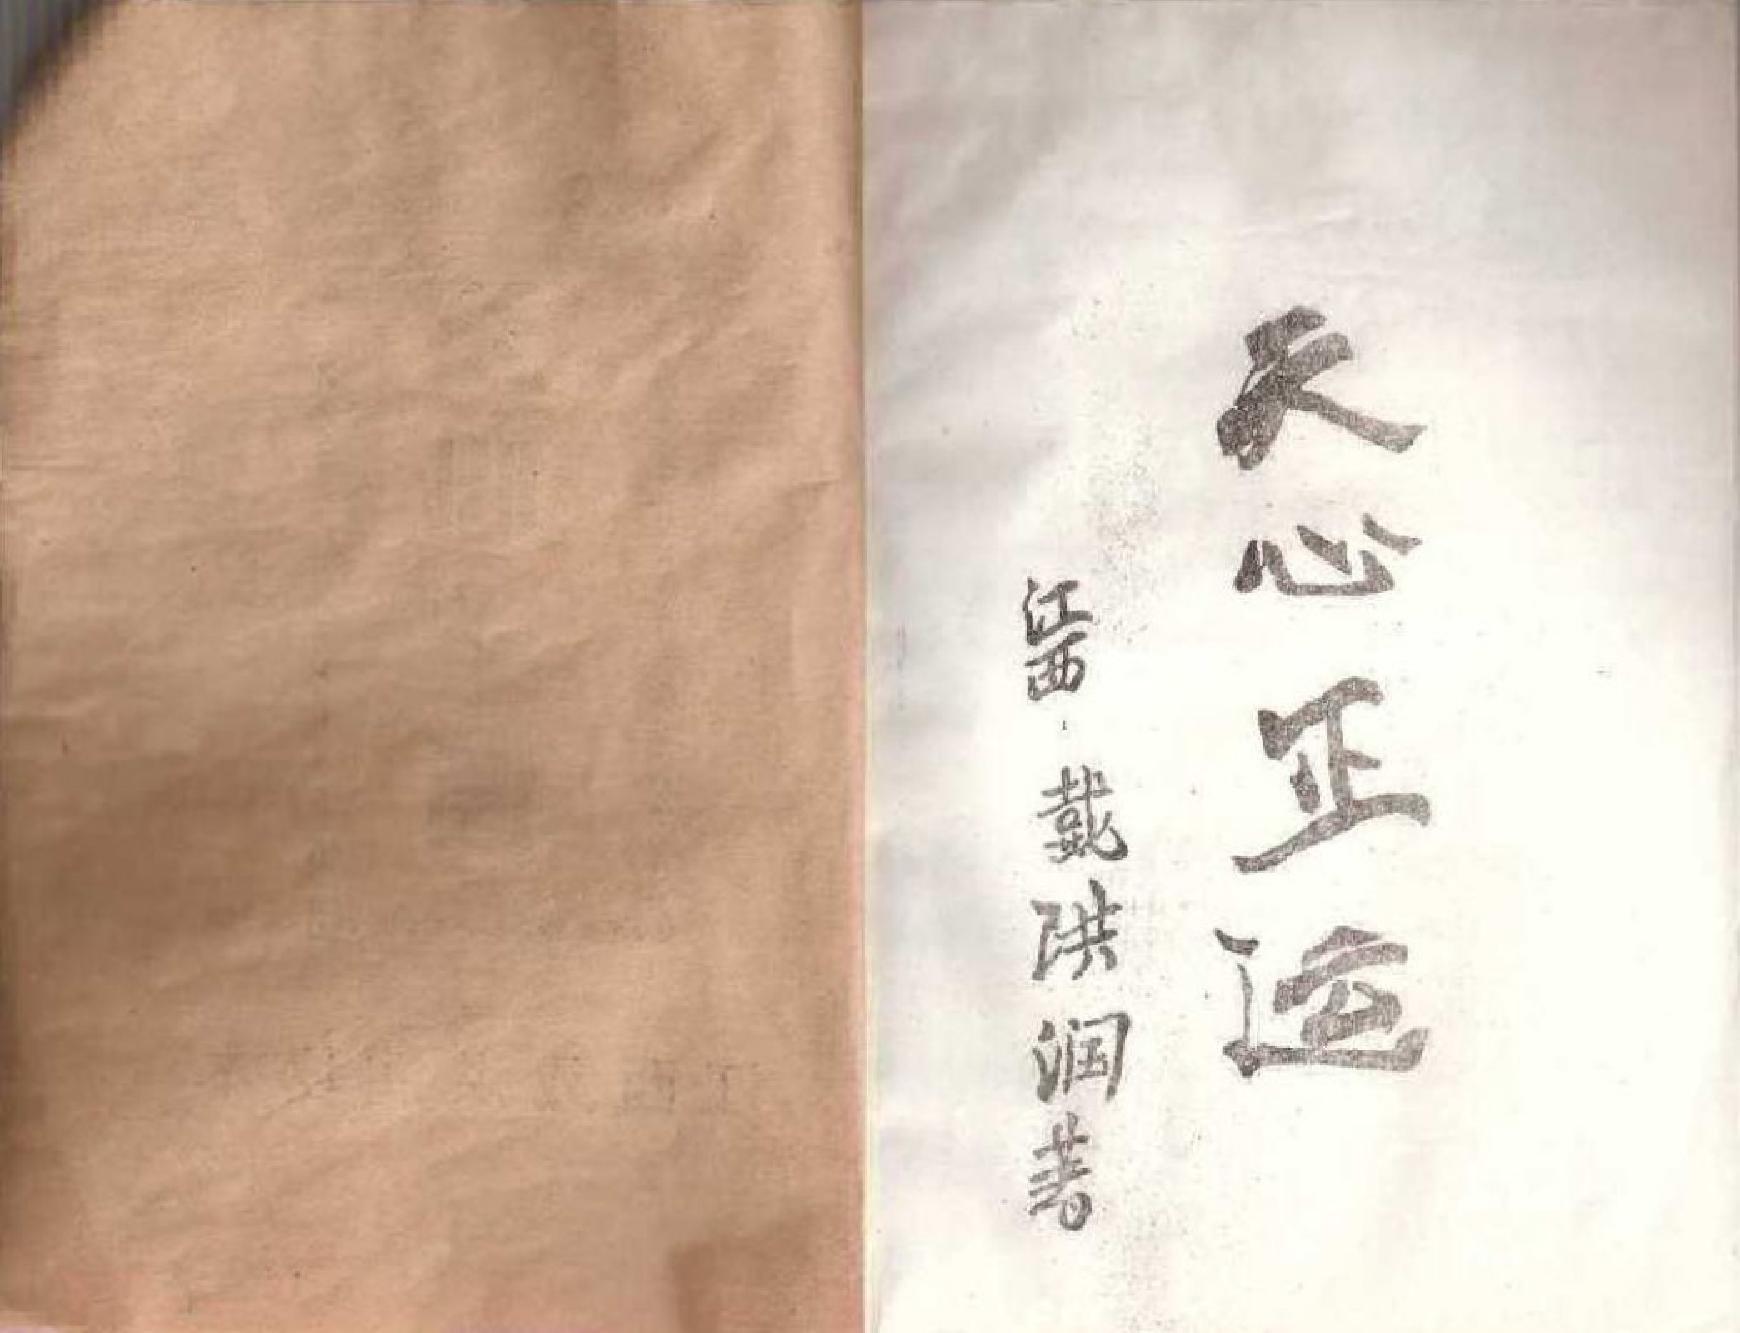 天心正运
江西 戴洪润著